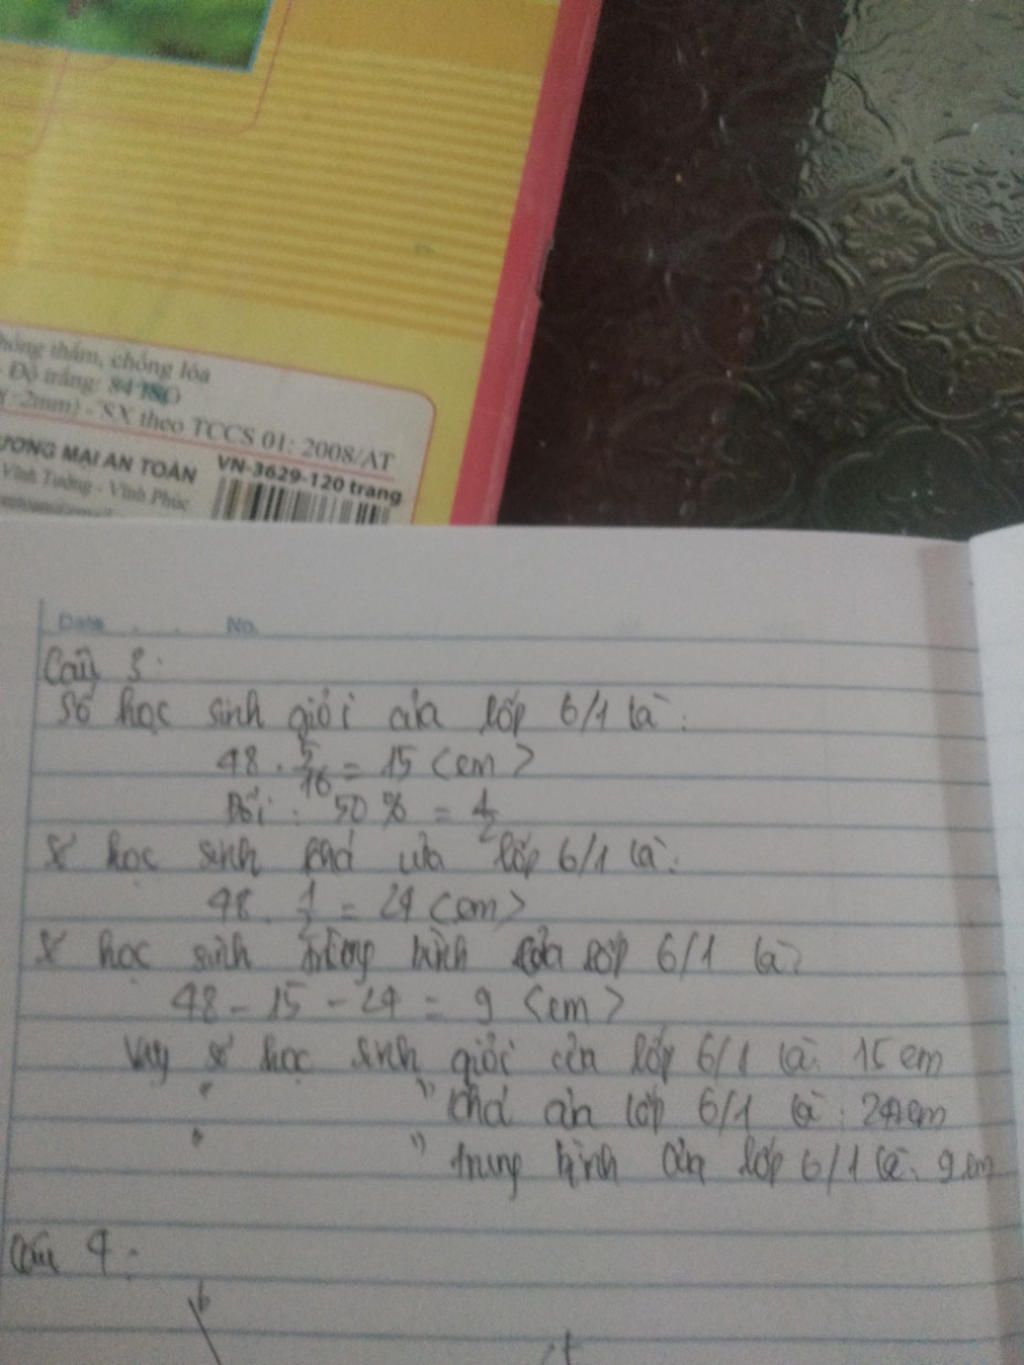 hống thấm, chống lóa
- Độ trắng: 84 ISO
=2mm) - SX theo TCCS 01: 2008/AT
ƯƠNG MẠI AN TOÀN
VN-3629-120 trang
Vĩnh Tường - Vĩnh Phúc
Date . . No.
Câu 3:
Số học sinh giỏi của lớp 6/1 là:
48 . 5/16 = 15 (em)
Đổi : 50 % = 1/2
Số học sinh khá của lớp 6/1 là:
48 . 1/2 = 24 (em)
Số học sinh trung bình của lớp 6/1 là:
48 - 15 - 24 = 9 (em)
Vậy số học sinh giỏi của lớp 6/1 là: 15 em
" " khá của lớp 6/1 là: 24 em
" " trung bình của lớp 6/1 là: 9 em
Câu 4:
b
t